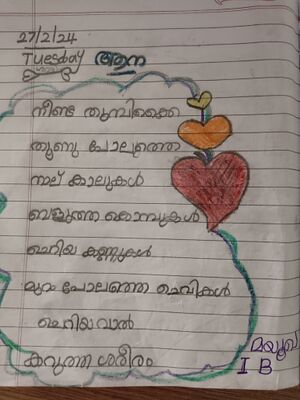 27/2/24
Tuesday ആന
നീണ്ട തുമ്പിക്കൈ
തൂണു പോലത്തെ
നാല് കാലുകൾ
വെളുത്ത കൊമ്പുകൾ
ചെറിയ കണ്ണുകൾ
മുറം പോലത്തെ ചെവികൾ
ചെറിയ വാൽ
കറുത്ത ശരീരം
മയൂഖ
I B